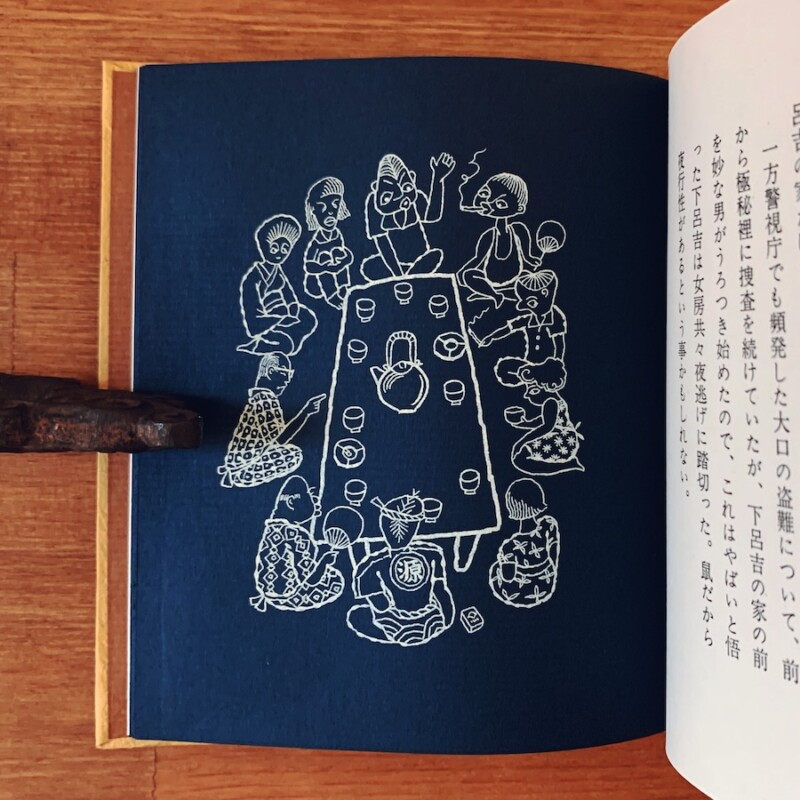 一方警視庁でも頻発した大口の盗難について、前
から極秘裡に捜査を続けていたが、下呂吉の家の前
を妙な男がうろつき始めたので、これはやばいと悟
った下呂吉は女房共々夜逃げに踏切った。鼠だから
夜行性があるという事かもしれない。
源